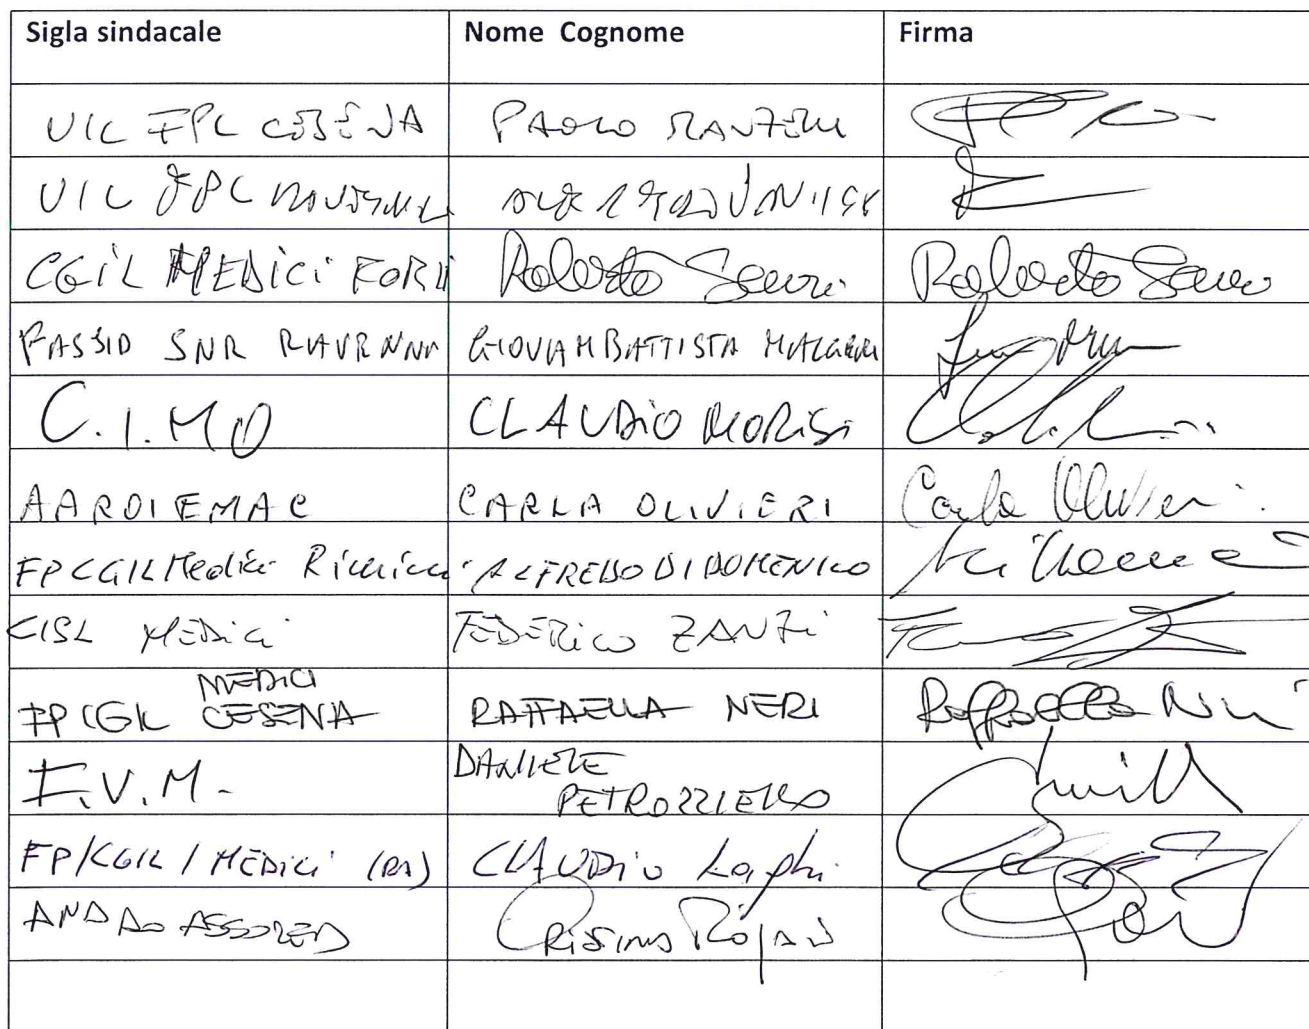 Sigla sindacale Nome Cognome Firma
UIL FPL CESENA PAOLO MANZELLI
UIL FPL
CGIL MEDICI FORLÌ Roberto Roberto
FASSID SNR RAVENNA GIOVAMBATTISTA
C.I.MO CLAUDIO MORISI
AAROI EMAC CARLA OLIVIERI Carla Olivieri
FPCGIL Medici ALFREDO DI DOMENICO
CISL MEDICI FEDERICO ZANZI
MEDICI
FP CGIL CESENA RAFFAELLA NERI Raffaella Neri
F.V.M. DANIELE
PETROZZIELLO
FP/CGIL/MEDICI (RA) CLAUDIO Laghi
ANAAO ASSOMED